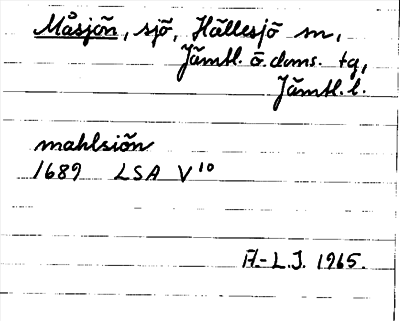 Måsjön, sjö, Hällesjö sn,
Jämtl. ö. doms. tg,
Jämtl. l.
mahlsiön
1689 LSA V¹⁰
A.-L.J. 1965.